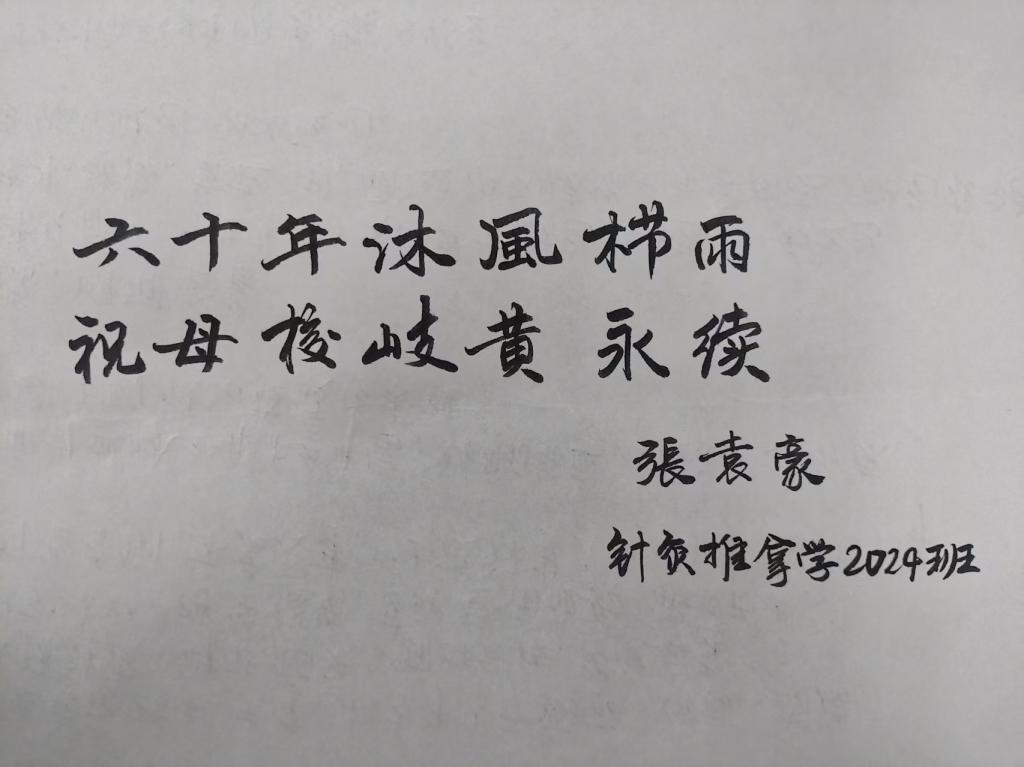 六十年沐風栉雨
祝母校岐黄永续
張袁豪
针灸推拿学2024班